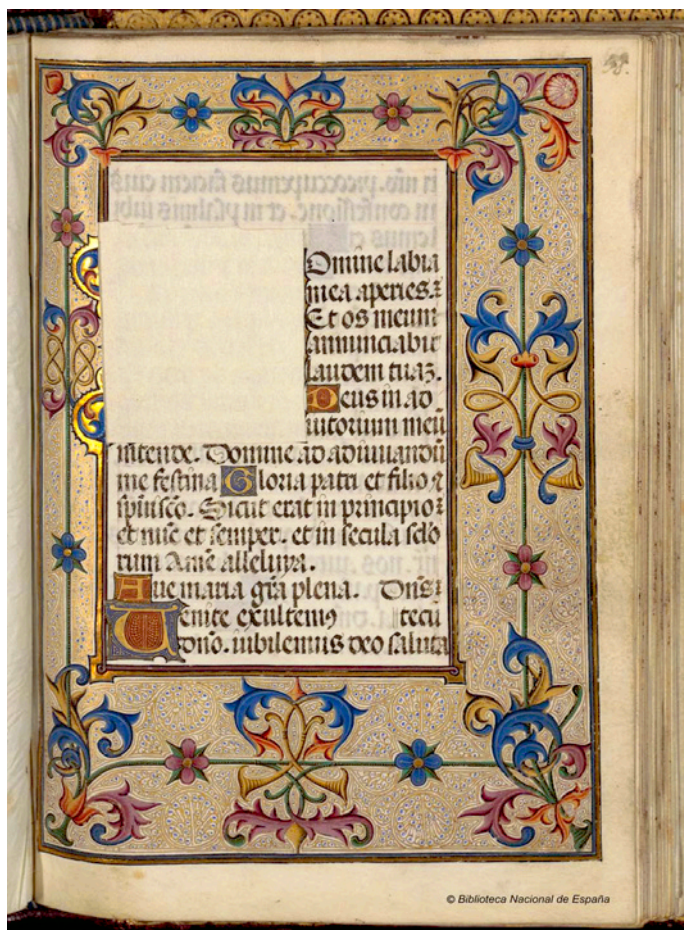 Domine labia
mea aperies. ⁊
Et os meum
annunciabit
laudem tuaʒ.
Deus in ad
iutorium meū
intende. Domine ad adiuuandū
me festina Gloria patri et filio ⁊
spūiscō. Sicut erat in principio ⁊
et nūc et semper. et in secula sclō
rum Amē alleluya.
Aue maria grā plena. Dn̄s ⁊
Uenite exultemꝰ tecū
dn̄o. iubilemus deo saluta
© Biblioteca Nacional de España